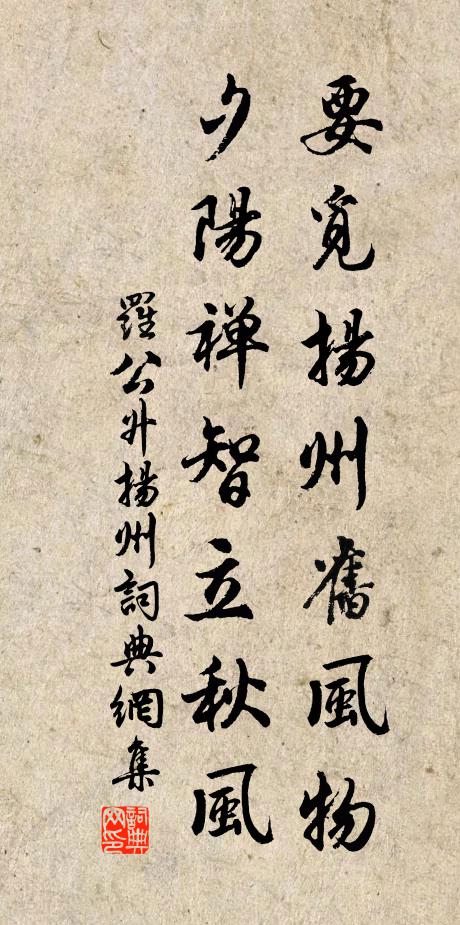 要覓揚州舊風物
夕陽禅智立秋風
羅公升揚州詞典網集
詞典網印